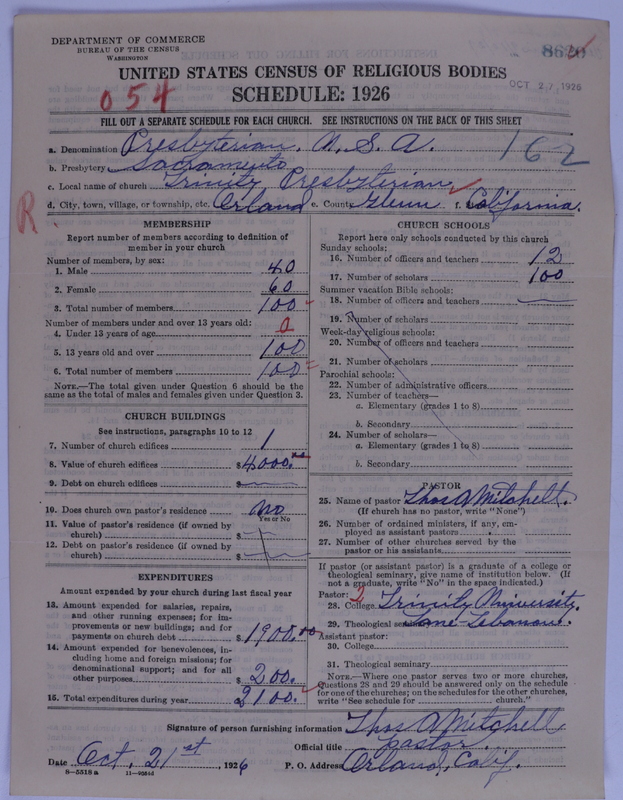 DEPARTMENT OF COMMERCE
BUREAU OF THE CENSUS
WASHINGTON
OCT 27, 1926
UNITED STATES CENSUS OF RELIGIOUS BODIES
SCHEDULE: 1926
054
FILL OUT A SEPARATE SCHEDULE FOR EACH CHURCH. SEE INSTRUCTIONS ON THE BACK OF THIS SHEET
a. Denomination Presbyterian. U. S. A. 162
b. Presbytery Sacramento
c. Local name of church Trinity Presbyterian
d. City, town, village, or township, etc. Orland e. County Glenn f. California.
R
MEMBERSHIP
Report number of members according to definition of
member in your church
Number of members, by sex:
1. Male 40
2. Female 60
3. Total number of members 100
Number of members under and over 13 years old:
4. Under 13 years of age 0
5. 13 years old and over 100
6. Total number of members 100
NOTE.—The total given under Question 6 should be the
same as the total of males and females given under Question 3.
CHURCH BUILDINGS
See instructions, paragraphs 10 to 12
7. Number of church edifices 1
8. Value of church edifices $4000.00
9. Debt on church edifices $
10. Does church own pastor's residence No
Yes or No
11. Value of pastor's residence (if owned by
church) $
12. Debt on pastor's residence (if owned by
church) $
EXPENDITURES
Amount expended by your church during last fiscal year
13. Amount expended for salaries, repairs,
and other running expenses; for im-
provements or new buildings; and for
payments on church debt $1900.00
14. Amount expended for benevolences, in-
cluding home and foreign missions; for
denominational support; and for all
other purposes $200.
15. Total expenditures during year $2100.
CHURCH SCHOOLS
Report here only schools conducted by this church
Sunday schools:
16. Number of officers and teachers 12
17. Number of scholars 100
Summer vacation Bible schools:
18. Number of officers and teachers
19. Number of scholars
Week-day religious schools:
20. Number of officers and teachers
21. Number of scholars
Parochial schools:
22. Number of administrative officers
23. Number of teachers—
a. Elementary (grades 1 to 8)
b. Secondary
24. Number of scholars—
a. Elementary (grades 1 to 8)
b. Secondary
PASTOR
25. Name of pastor Thos A Mitchell.
(If church has no pastor, write "None")
26. Number of ordained ministers, if any, em-
ployed as assistant pastors
27. Number of other churches served by the
pastor or his assistants
If pastor (or assistant pastor) is a graduate of a college or
theological seminary, give name of institution below. (If
not a graduate, write "No" in the space indicated.)
Pastor: 2
28. College Trinity University.
29. Theological Lane-Lebanon.
Assistant pastor:
30. College
31. Theological seminary
NOTE.—Where one pastor serves two or more churches,
Questions 28 and 29 should be answered only on the schedule
for one of the churches; on the schedules for the other churches,
write "See schedule for church."
Signature of person furnishing information Thos A Mitchell
Official title pastor.
Date Oct. 21st, 1926 P. O. Address Orland, Calif.
8—5518a 11—9585d